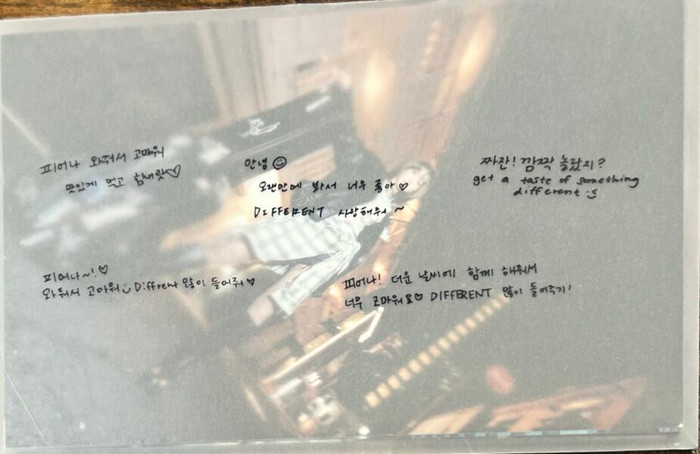 피어나 와줘서 고마워
맛있게 먹고 힘내랏♡
안녕☺
오랜만에 봐서 너무 좋아♡
DIFFERENT 사랑해줘~
짜잔! 깜짝 놀랐지?
get a taste of something
different :s
피어나~!♡
와줘서 고마워 Diffrent 많이 들어줘♥
피어나! 더운 날씨에 함께 해줘서
너무 고마워♡ DIFFERENT 많이 들어주기!